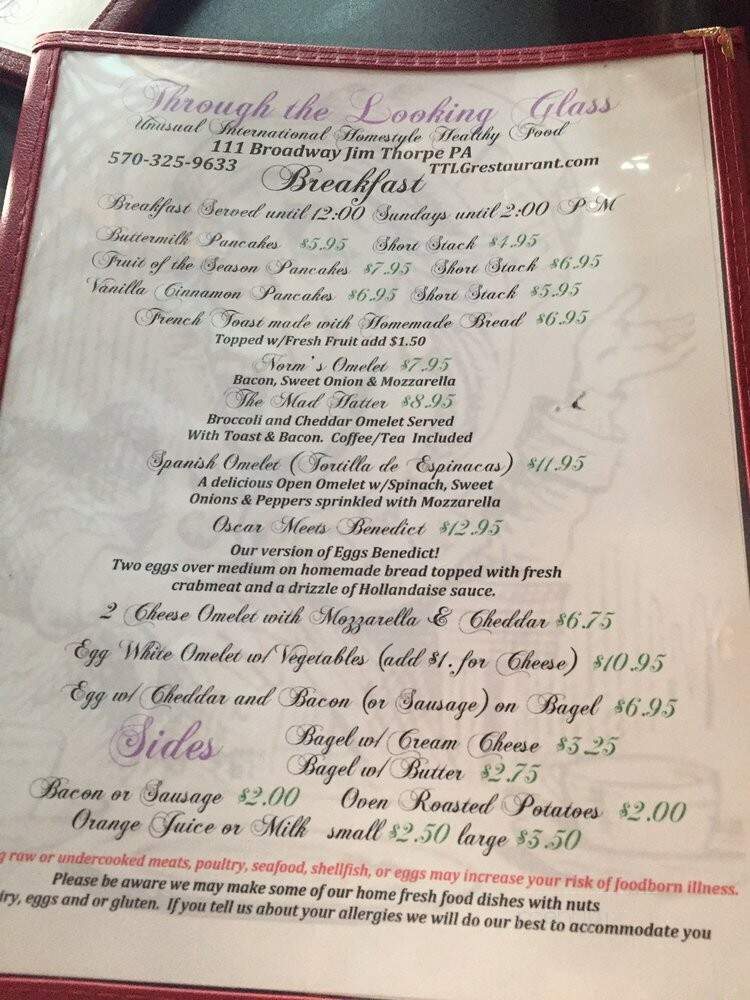 Through the Looking Glass
Unusual International Homestyle Healthy Food
111 Broadway Jim Thorpe PA
570-325-9633 TTLGrestaurant.com
Breakfast
Breakfast Served until 12:00 Sundays until 2:00 PM
Buttermilk Pancakes $5.95 Short Stack $4.95
Fruit of the Season Pancakes $7.95 Short Stack $6.95
Vanilla Cinnamon Pancakes $6.95 Short Stack $5.95
French Toast made with Homemade Bread $6.95
Topped w/Fresh Fruit add $1.50
Norm's Omelet $7.95
Bacon, Sweet Onion & Mozzarella
The Mad Hatter $8.95
Broccoli and Cheddar Omelet Served
With Toast & Bacon. Coffee/Tea Included
Spanish Omelet (Tortilla de Espinacas) $11.95
A delicious Open Omelet w/Spinach, Sweet
Onions & Peppers sprinkled with Mozzarella
Oscar Meets Benedict $12.95
Our version of Eggs Benedict!
Two eggs over medium on homemade bread topped with fresh
crabmeat and a drizzle of Hollandaise sauce.
2 Cheese Omelet with Mozzarella & Cheddar $6.75
Egg White Omelet w/Vegetables (add $1. for Cheese) $10.95
Egg w/Cheddar and Bacon (or Sausage) on Bagel $6.95
Sides
Bagel w/Cream Cheese $3.25
Bagel w/Butter $2.75
Bacon or Sausage $2.00 Oven Roasted Potatoes $2.00
Orange Juice or Milk small $2.50 large $3.50
raw or undercooked meats, poultry, seafood, shellfish, or eggs may increase your risk of foodborn illness.
Please be aware we may make some of our home fresh food dishes with nuts
eggs and or gluten. If you tell us about your allergies we will do our best to accommodate you